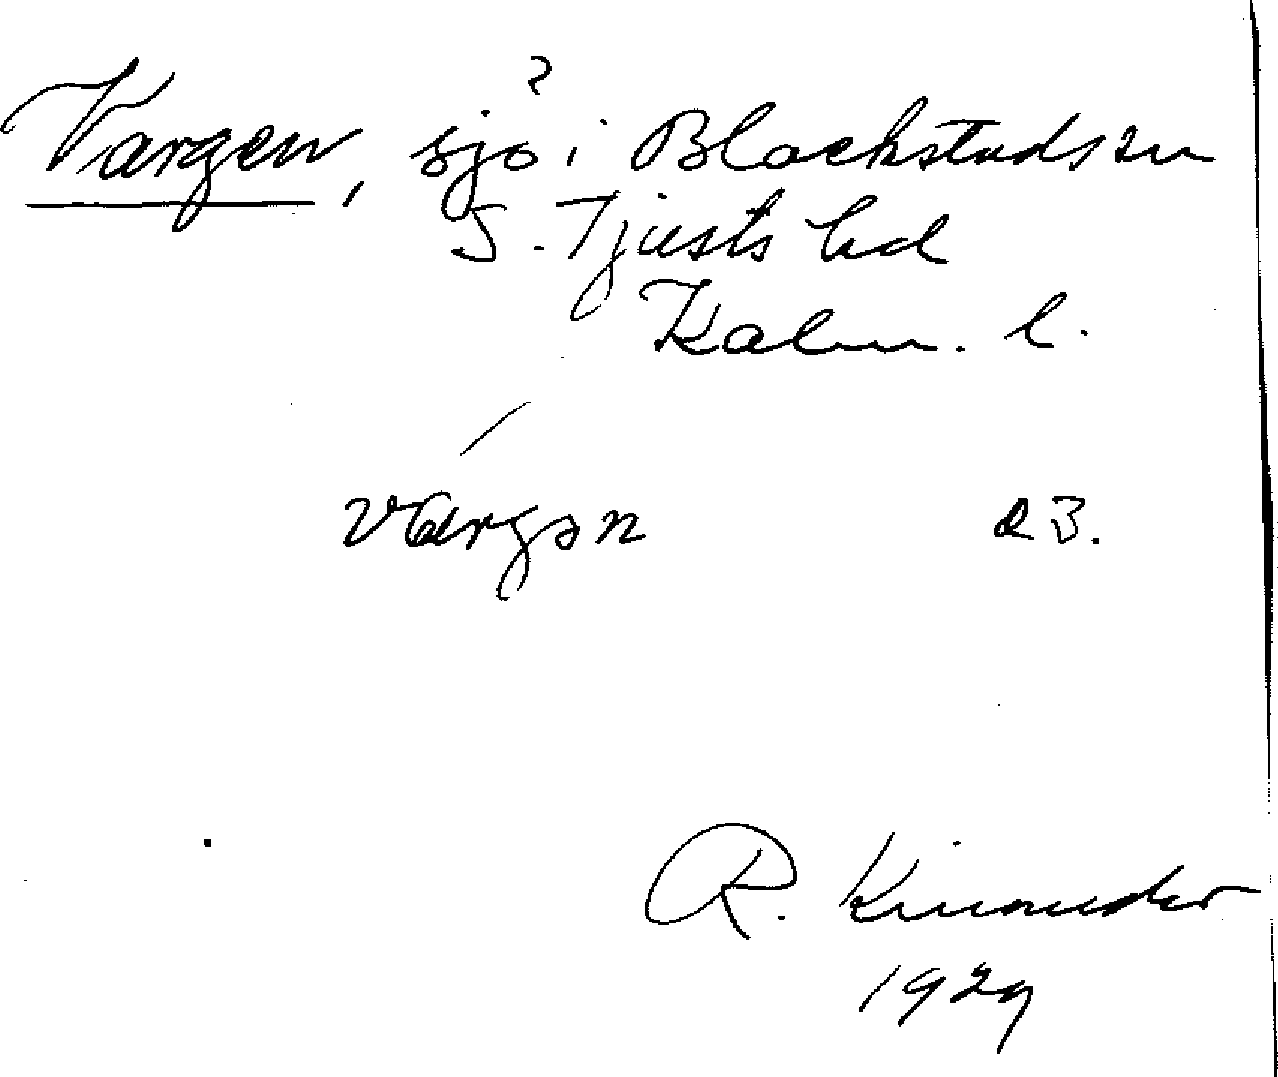 ?
Vargen, sjö i Blackstads sn
S. Tjusts hd
Kalm. l.
vargən
R. Kinander
1929